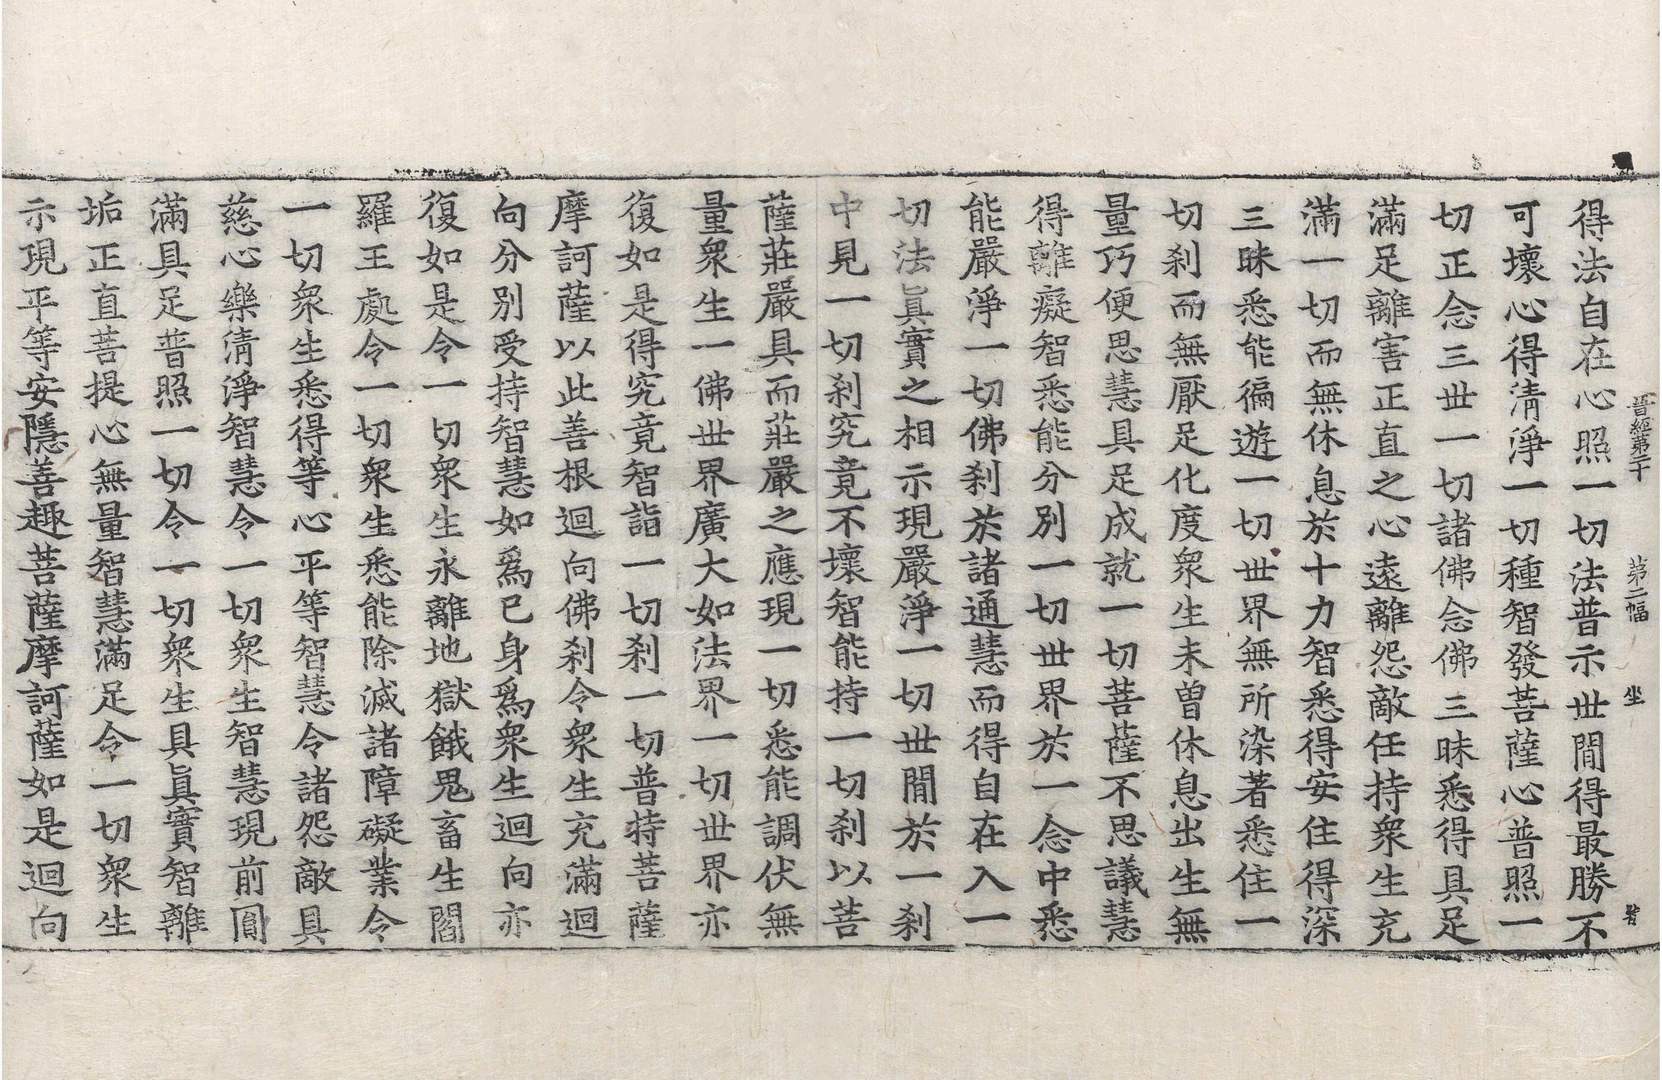 晉經第二十 第二幅 坐
得法自在心照一切法普示世間得最勝不
可壞心得清淨一切種智發菩薩心普照一
切正念三世一切諸佛念佛三昧悉得具足
滿足離害正直之心遠離怨敵任持衆生充
滿一切而無休息於十力智悉得安住得深
三昧悉能徧遊一切世界無所染著悉住一
切刹而無厭足化度衆生未曽休息出生無
量巧便思慧具足成就一切菩薩不思議慧
得離癡智悉能分別一切世界於一念中悉
能嚴淨一切佛刹於諸通慧而得自在入一
切法眞實之相示現嚴淨一切世間於一刹
中見一切刹究竟不壞智能持一切刹以菩
薩莊嚴具而莊嚴之應現一切悉能調伏無
量衆生一佛世界廣大如法界一切世界亦
復如是得究竟智詣一切刹一切普持菩薩
摩訶薩以此善根迴向佛刹令衆生充滿迴
向分別受持智慧如爲已身爲衆生迴向亦
復如是令一切衆生永離地獄餓鬼畜生閻
羅王處令一切衆生悉能除滅諸障礙業令
一切衆生悉得等心平等智慧令諸怨敵具
慈心樂清淨智慧令一切衆生智慧現前圓
滿具足普照一切令一切衆生具眞實智離
垢正直菩提心無量智慧滿足令一切衆生
示現平等安隱善趣菩薩摩訶薩如是迴向